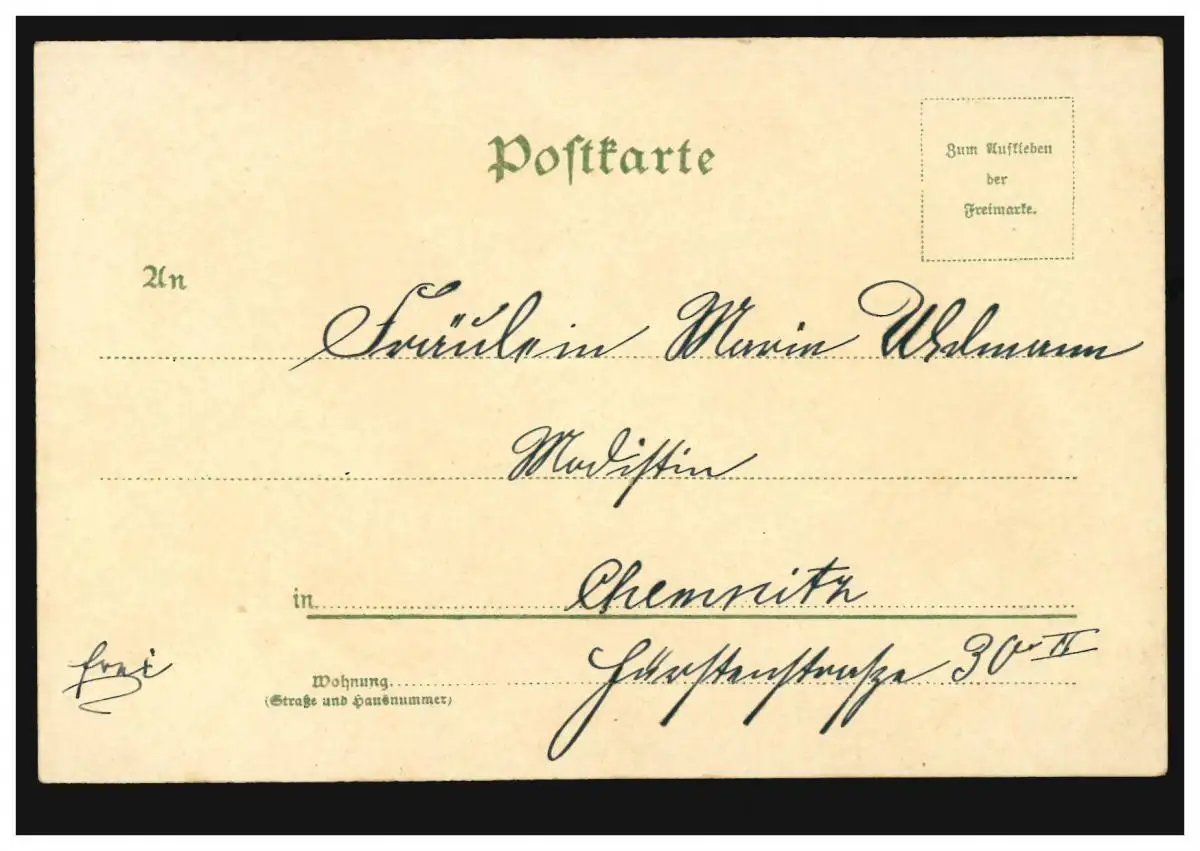 Postkarte
Zum Aufkleben
der
Freimarke.
An
Fräulein Marie Uhlmann
Modistin
in Chemnitz
frei
Fürstenstraße 30 II
Wohnung
(Straße und Hausnummer)